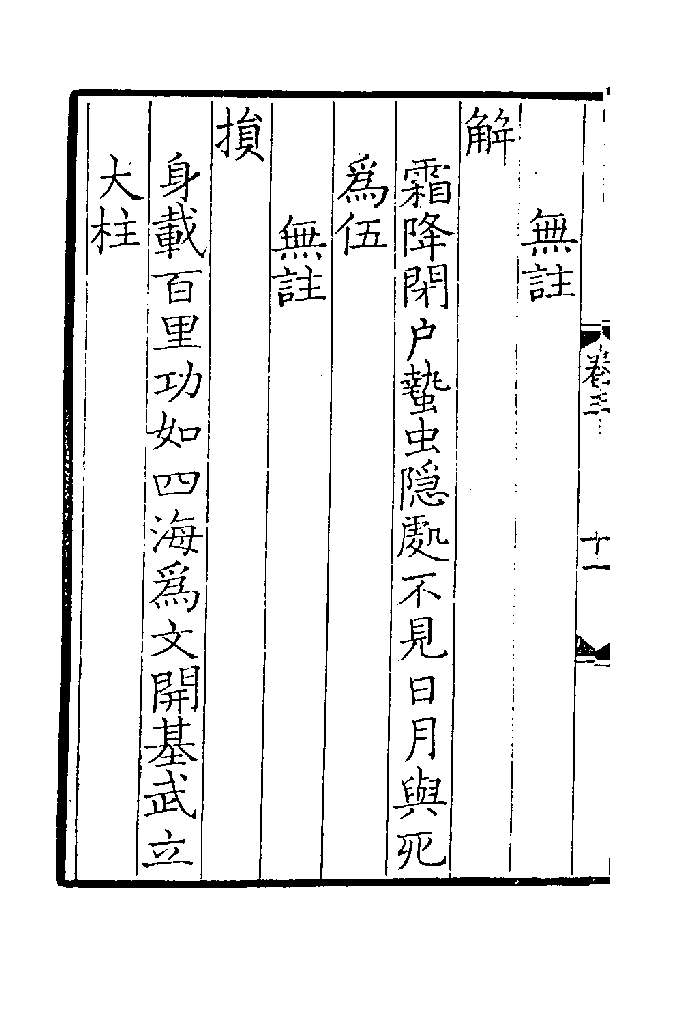 卷三
十一
無註
解
霜降閉戶蟄虫隱處不見日月與死
爲伍
無註
損
身載百里功如四海爲文開基武立
大柱